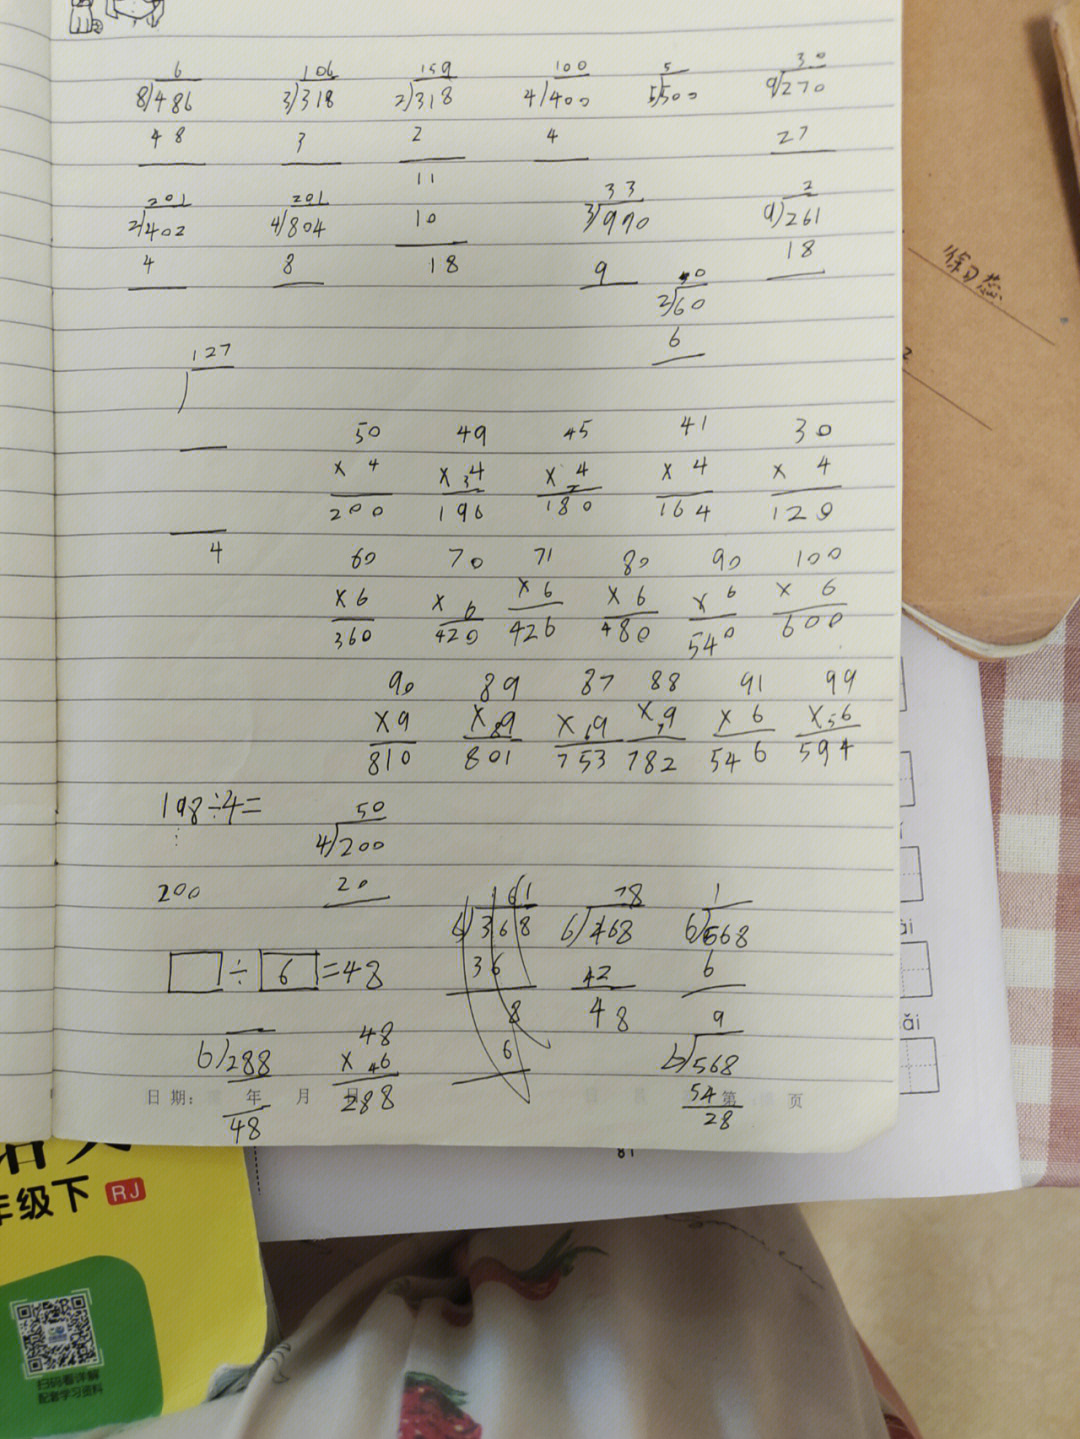 6 106 159 100 5 30
8)486 3)318 2)318 4)400 5)500 9)270
48 3 2 4 27
11
201 201 33 2
2)402 4)804 10 3)990 9)261
4 8 18 9 18
30
2)60
6
127
50 49 45 41 30
× 4 × 34 × 24 × 4 × 4
200 196 180 164 120
4
60 70 71 80 90 100
×6 × 6 × 6 × 6 × 6 × 6
360 420 426 480 540 600
90 89 87 88 91 99
×9 ×89 ×69 ×79 × 6 ×56
810 801 753 782 546 594
198÷4= 50
4)200
200 20
61 78 1
6)368 6)468 6)668
36 42 6
□÷6=48
8 48
6 9
48
6)288 × 46 6)568
288 54
48 28
日期: 年 月 日 第 页
81
年级下 RJ
扫码看详解
配套学习资料
ǎi